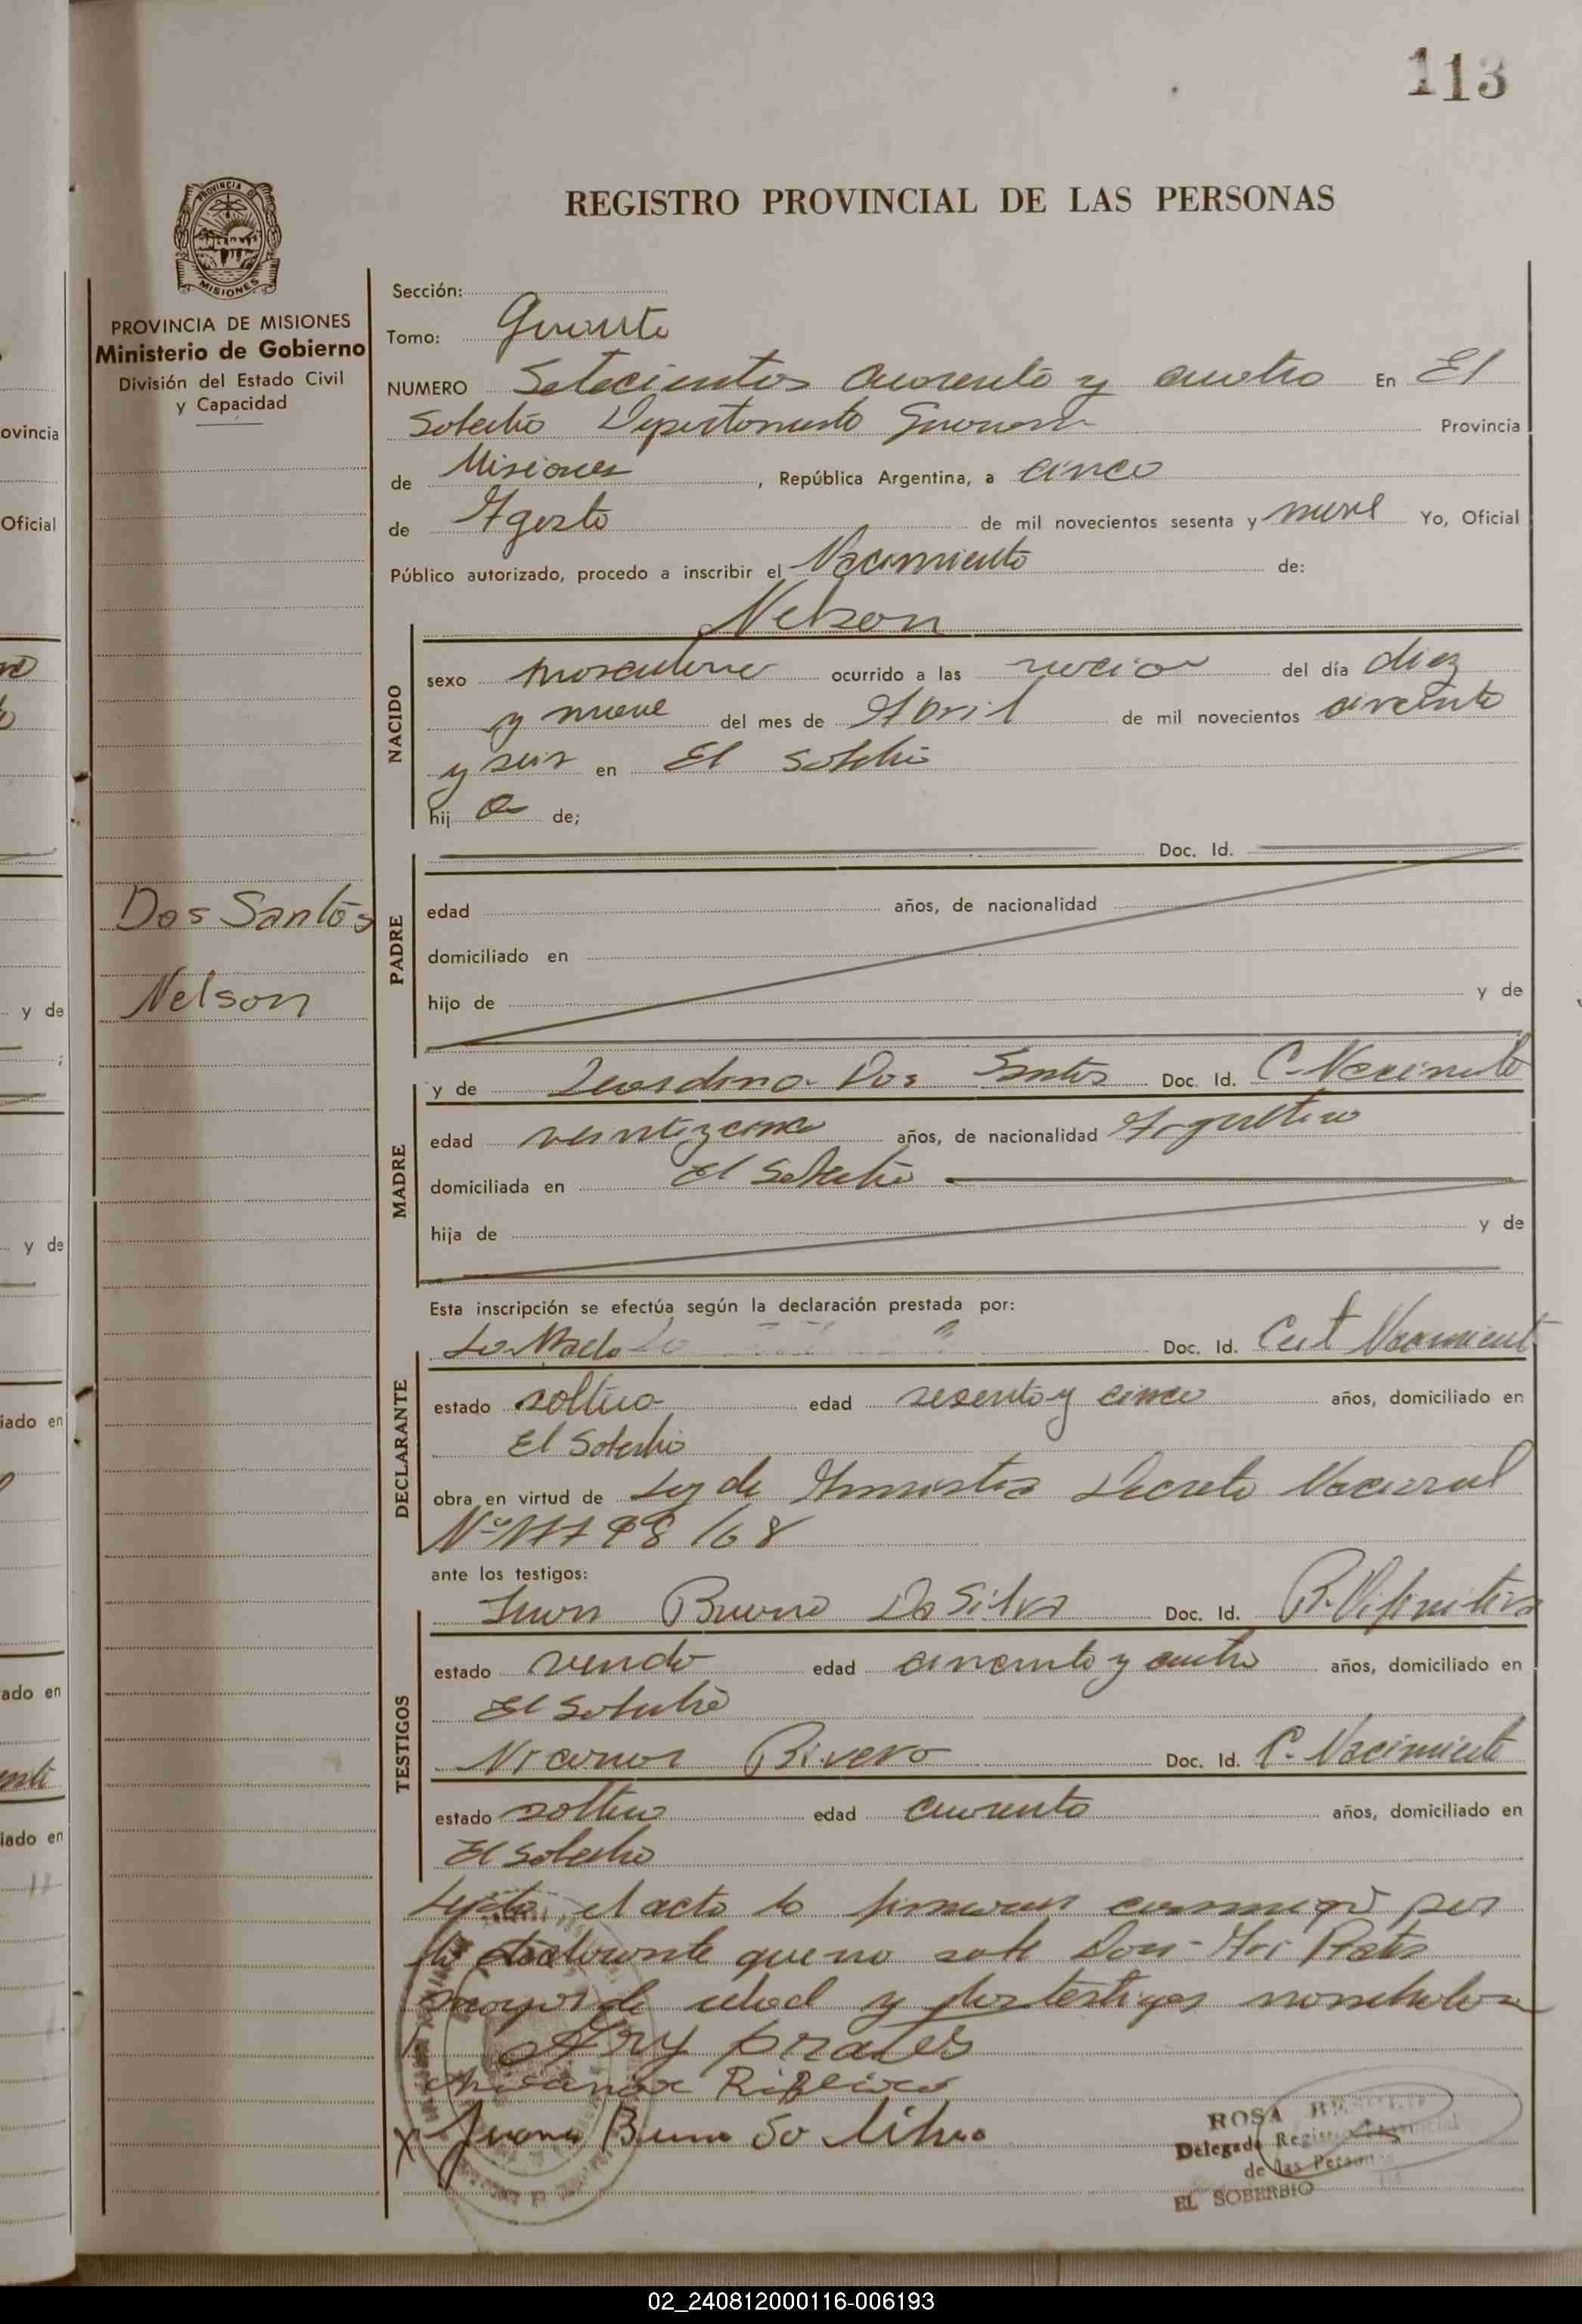 113
REGISTRO PROVINCIAL DE LAS PERSONAS
PROVINCIA DE
MISIONES
PROVINCIA DE MISIONES
Ministerio de Gobierno
División del Estado Civil
y Capacidad
Sección:
Tomo:
NUMERO Setecientos cuarenta y cuatro En El
Soberbio Departamento Guarani Provincia
de Misiones, República Argentina, a cinco
de Agosto de mil novecientos sesenta y nueve Yo, Oficial
Público autorizado, procedo a inscribir el Nacimiento de:
Nelson
NACIDO
sexo masculino ocurrido a las del día diez
y nueve del mes de Abril de mil novecientos cincuenta
y seis en El Soberbio
hij o de;
Dos Santos
Nelson
PADRE
Doc. Id.
edad años, de nacionalidad
domiciliado en
hijo de y de
MADRE
y de Dos Santos Doc. Id. C. Nacimiento
edad veinticinco años, de nacionalidad Argentina
domiciliada en El Soberbio
hija de y de
Esta inscripción se efectúa según la declaración prestada por:
DECLARANTE
La Madre Doc. Id. Cert Nacimient
estado soltera edad sesenta y cinco años, domiciliado en
El Soberbio
obra en virtud de Ley de Amnistia Decreto Nacional
Nº /68
ante los testigos:
TESTIGOS
Juan Bueno Da Silva Doc. Id. B. Difinitiva
estado viudo edad cincuenta y cuatro años, domiciliado en
El Soberbio
Nicanor Rivero Doc. Id. C. Nacimiento
estado soltero edad cuarenta años, domiciliado en
El Soberbio
el acta la firmaran conmigo por
la declarante que no sabe Don Ari Prates
mayor de edad y los testigos nombrados
Ary prates
Ribeiro
X Juana
ROSA
Delegado
de las Person
EL SOBERBIO
ovincia
Oficial
y de
y de
iado en
ado en
iado en
02_240812000116-006193